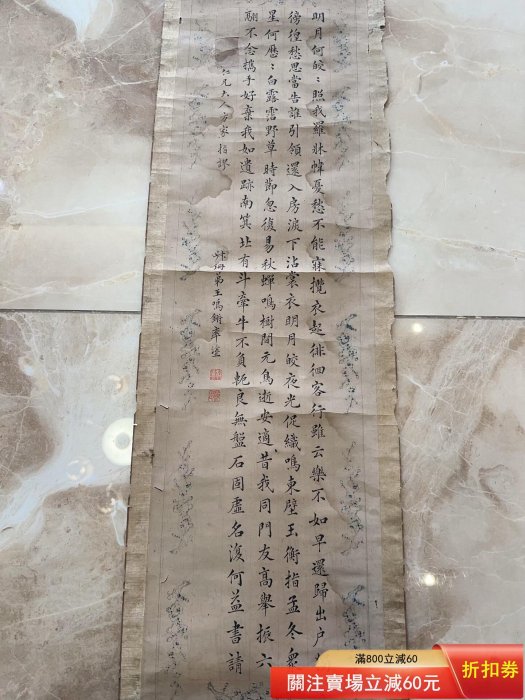 明月何皎〻照我羅牀幃憂愁不能寐攬衣起徘徊客行雖云樂不如早還歸出戶
徬徨愁思當告誰引領還入房淚下沾裳衣明月皎夜光促織鳴東壁玉衡指孟冬衆
星何歷〻白露霑野草時節忽復易秋蟬鳴樹間元鳥逝安適昔我同門友高舉振六
翮不念攜手好棄我如遺跡南箕北有斗牽牛不負軛良無盤石固虛名復何益書請
仁兄大人方家指謬
弟王鳴
滿800立減60
關注賣場立減60元
折扣券